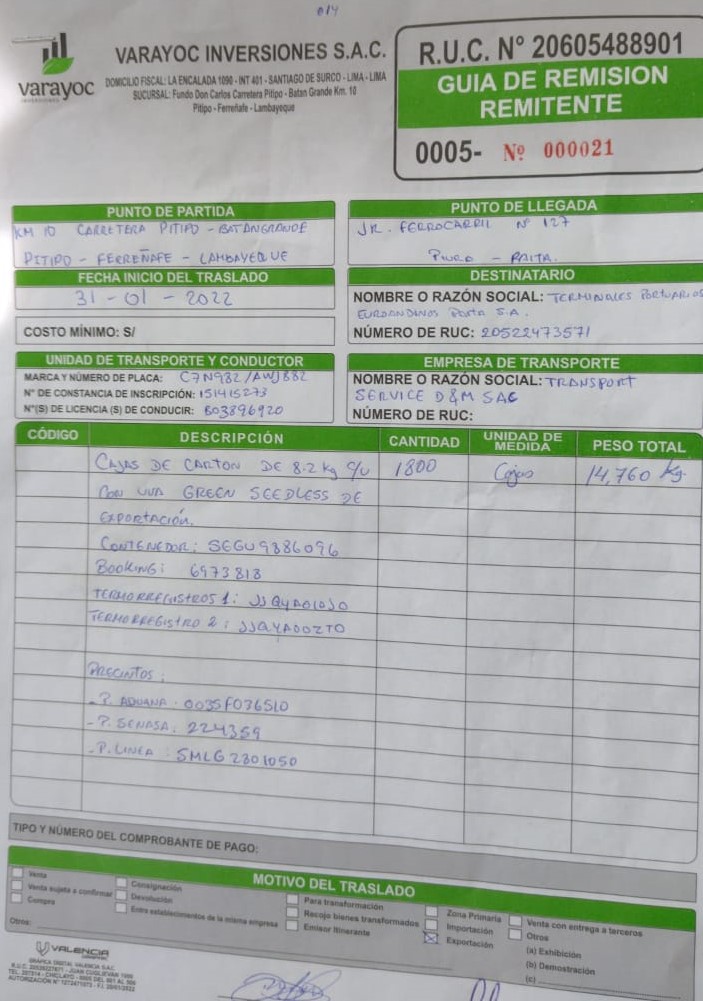 014
varayoc
INVERSIONES
VARAYOC INVERSIONES S.A.C.
DOMICILIO FISCAL: LA ENCALADA 1090 - INT 401 - SANTIAGO DE SURCO - LIMA - LIMA
SUCURSAL: Fundo Don Carlos Carretera Pitipo - Batan Grande Km. 10
Pitipo - Ferreñafe - Lambayeque
R.U.C. N° 20605488901
GUIA DE REMISION
REMITENTE
0005- Nº 000021
PUNTO DE PARTIDA
KM 10 CARRETERA PITIPO - BATANGRANDE
PITIPO - FERREÑAFE - LAMBAYEQUE
PUNTO DE LLEGADA
JR. FERROCARRIL Nº 127
PIURA - PAITA.
FECHA INICIO DEL TRASLADO
31 - 01 - 2022
COSTO MÍNIMO: S/
DESTINATARIO
NOMBRE O RAZÓN SOCIAL: TERMINALES PORTUARIOS
EUROANDINOS PAITA S.A.
NÚMERO DE RUC: 20522473571
UNIDAD DE TRANSPORTE Y CONDUCTOR
MARCA Y NÚMERO DE PLACA: C7N982/AWJ882
N° DE CONSTANCIA DE INSCRIPCIÓN: 151415273
N°(S) DE LICENCIA (S) DE CONDUCIR: B03896920
EMPRESA DE TRANSPORTE
NOMBRE O RAZÓN SOCIAL: TRANSPORT
SERVICE D&M SAC
NÚMERO DE RUC:
CÓDIGO DESCRIPCIÓN CANTIDAD UNIDAD DE MEDIDA PESO TOTAL
CAJAS DE CARTON DE 8.2 kg c/u 1800 Cajas 14,760 kg.
CON UVA GREEN SEEDLESS DE
EXPORTACIÓN.
CONTENEDOR: SEGU9886096
BOOKING: 6973818
TERMORREGISTROS 1: JJQYA01030
TERMORREGISTRO 2: JJQYA002T0
PRECINTOS:
- P. ADUANA: 0035F036510
- P. SENASA: 224359
- P. LINEA: SMLG2801050
TIPO Y NÚMERO DEL COMPROBANTE DE PAGO:
MOTIVO DEL TRASLADO
Venta
Venta sujeta a confirmar
Compra
Consignación
Devolución
Entre establecimientos de la misma empresa
Para transformación
Recojo bienes transformados
Emisor Itinerante
Zona Primaria
Importación
Exportación
Venta con entrega a terceros
Otros
(a) Exhibición
(b) Demostración
(c)
Otros:
VALENCIA
GRÁFICA DIGITAL VALENCIA S.A.C.